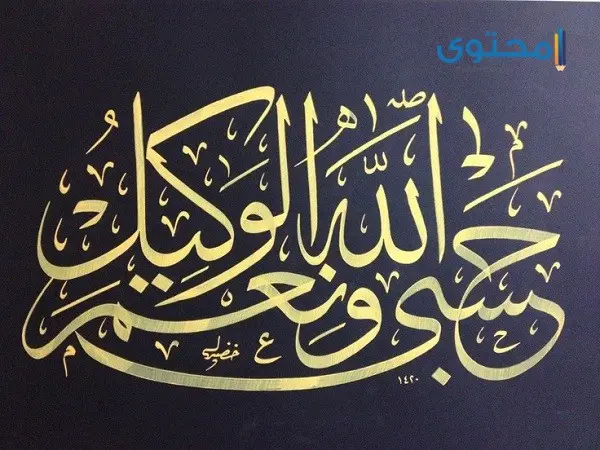 محتوى
حسبي الله ونعم الوكيل
١٤٢٠